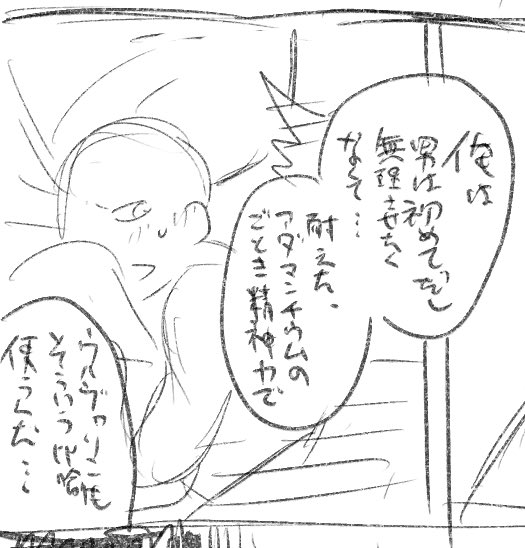 俺は
男は初めてだし
無理させたく
なくて…
耐えた、
アダマンチウムの
ごとき精神力で
ウルヴァリンも
そういう比喩
使うんだ…